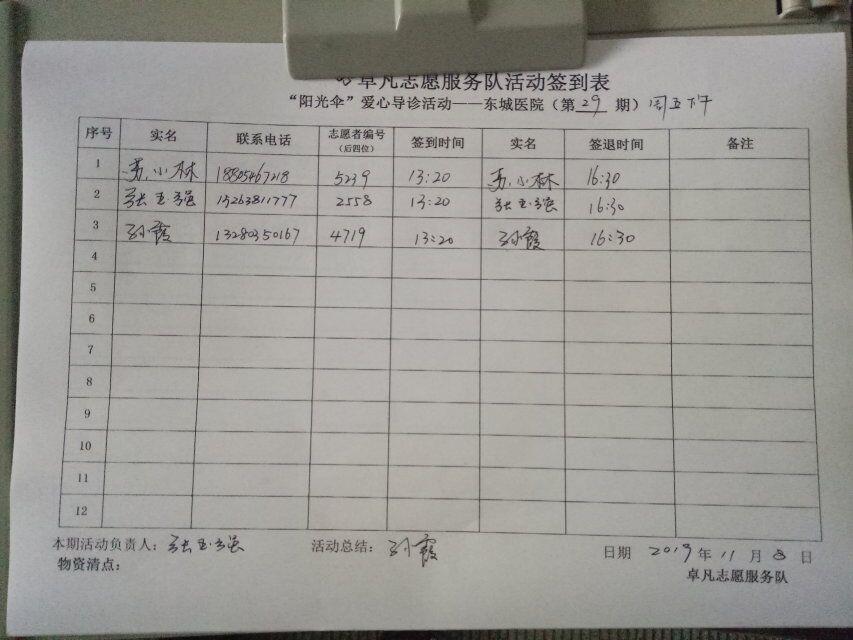 卓凡志愿服务队活动签到表
“阳光伞”爱心导诊活动——东城医院（第 29 期）周五下午
序号 实名 联系电话 志愿者编号（后四位） 签到时间 实名 签退时间 备注
1 苏小林 5239 13:20 苏小林 16:30
2 张玉强 13263811777 2558 13:20 张玉强 16:30
3 孙霞 13280350167 4719 13:20 孙霞 16:30
4
5
6
7
8
9
10
11
12
本期活动负责人：张玉强 活动总结：孙霞 日期 2019 年 11 月 8 日
物资清点： 卓凡志愿服务队